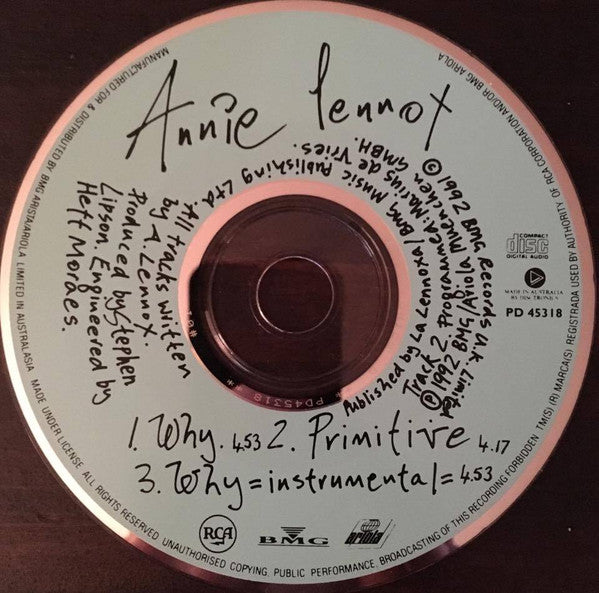 Annie Lennox
All tracks written
by A. Lennox.
Produced by Stephen
Lipson. Engineered by
Heff Moraes.
Published by La Lennoxa/BMG Music Publishing Ltd.
Track 2 Programmed: Marius de Vries.
℗1992 BMG/Ariola Muenchen GMBH.
©1992 BMG Records UK. Limited
COMPACT
disc
DIGITAL AUDIO
MADE IN AUSTRALIA
BY DISCTRONICS
PD 45318
* PD45318 *
1. Why. 4.53 2. Primitive 4.17
3. Why = instrumental = 4.53
RCA
BMG
ariola
MANUFACTURED FOR & DISTRIBUTED BY BMG ARISTA/ARIOLA LIMITED IN AUSTRALASIA MADE UNDER LICENSE. ALL RIGHTS RESERVED. UNAUTHORISED COPYING, PUBLIC PERFORMANCE, BROADCASTING OF THIS RECORDING FORBIDDEN TM(S) (R) MARCA(S) REGISTRADA USED BY AUTHORITY OF RCA CORPORATION AND/OR BMG ARIOLA